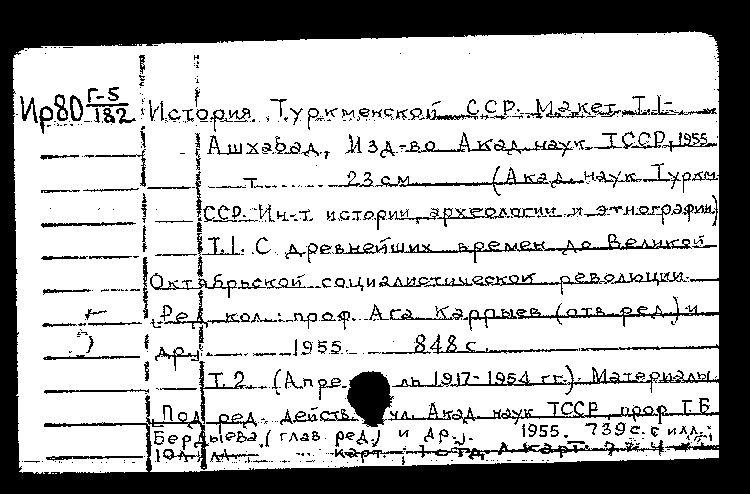 Ир80 Г-5/182 История Туркменской ССР. Макет Т.1-
Ашхабад, Изд-во Акад. наук ТССР, 1955
т. 23 см (Акад. наук Туркм.
ССР. Ин-т истории, археологии и этнографии)
Т.1. С древнейших времен до Великой
Октябрьской социалистической революции.
Ред. кол.: проф. Ага Каррыев (отв. ред.) и
5
5
др., 1955. 848 с.
Т.2. (Апрель 1917-1954 гг.). Материалы
Под ред. действ. чл. Акад. наук ТССР, проф. Г.Б.
Бердыева (глав. ред.) и др. 1955. 739 с. с илл.;
карт.